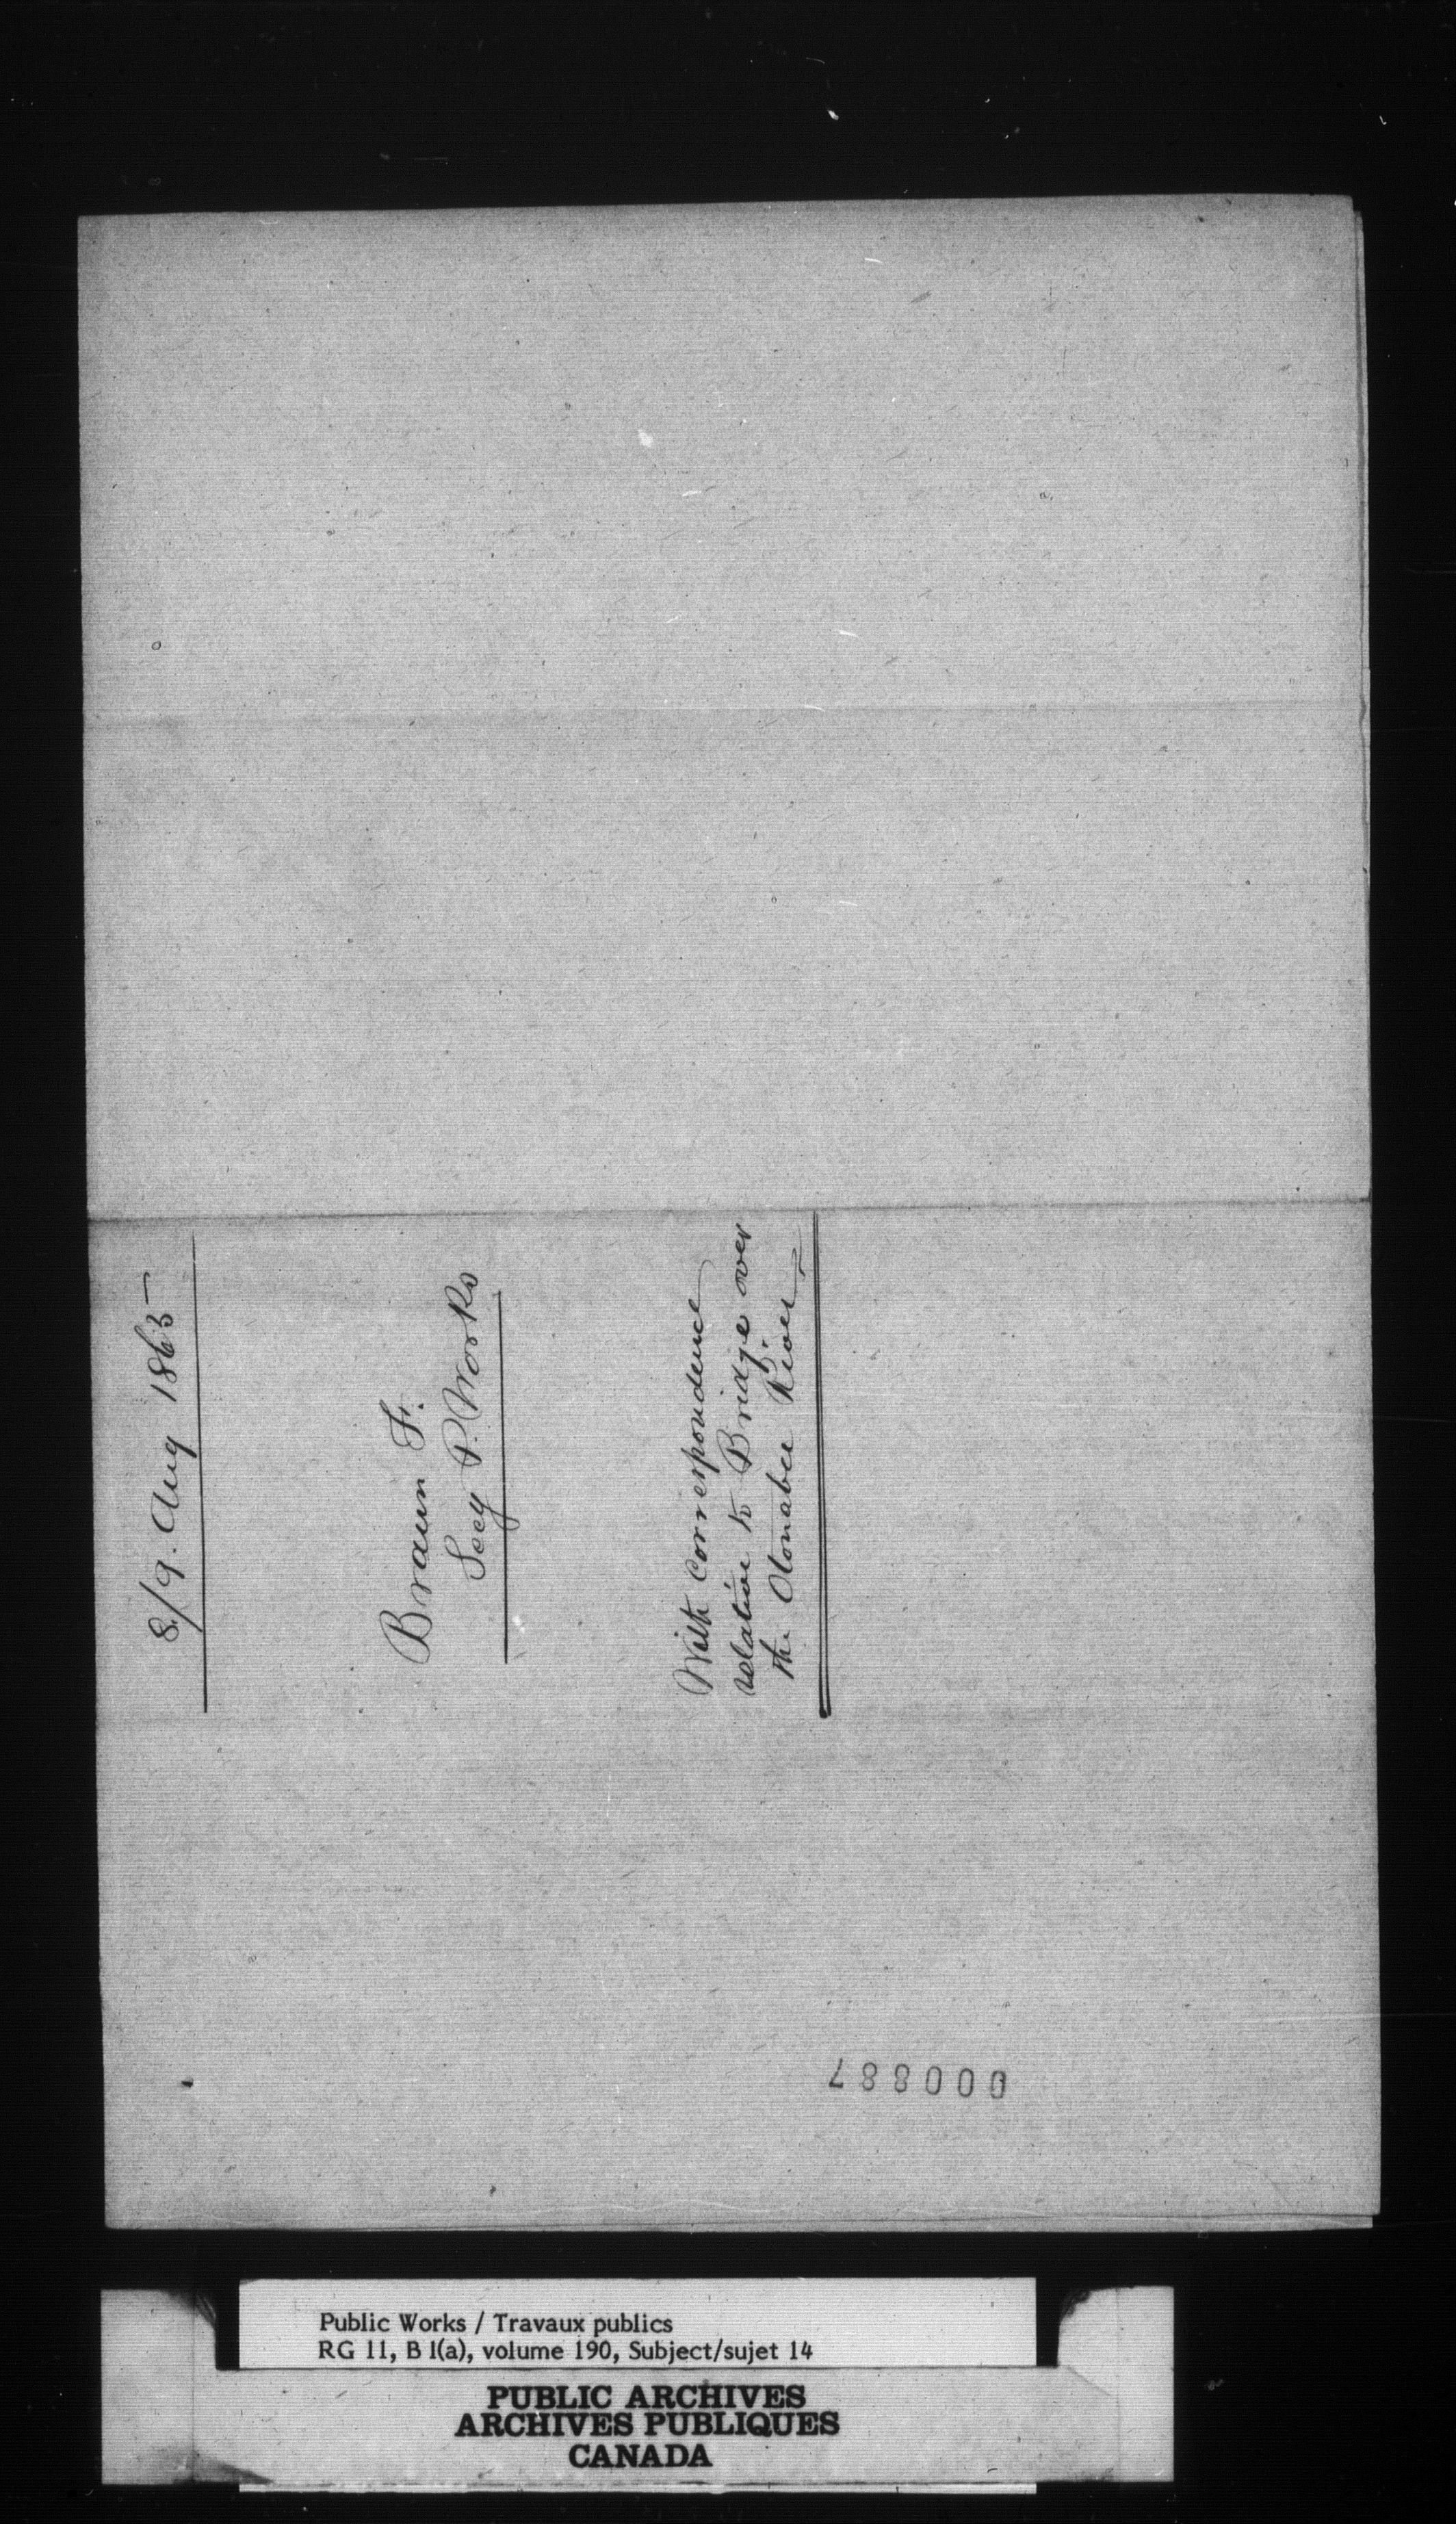 8/9. Aug 1865
Braun F.
Secy P. Works
With correspondence
relative to Bridge over
the Otonabee River
000887
Public Works / Travaux publics
RG 11, B 1(a), volume 190, Subject/sujet 14
PUBLIC ARCHIVES
ARCHIVES PUBLIQUES
CANADA